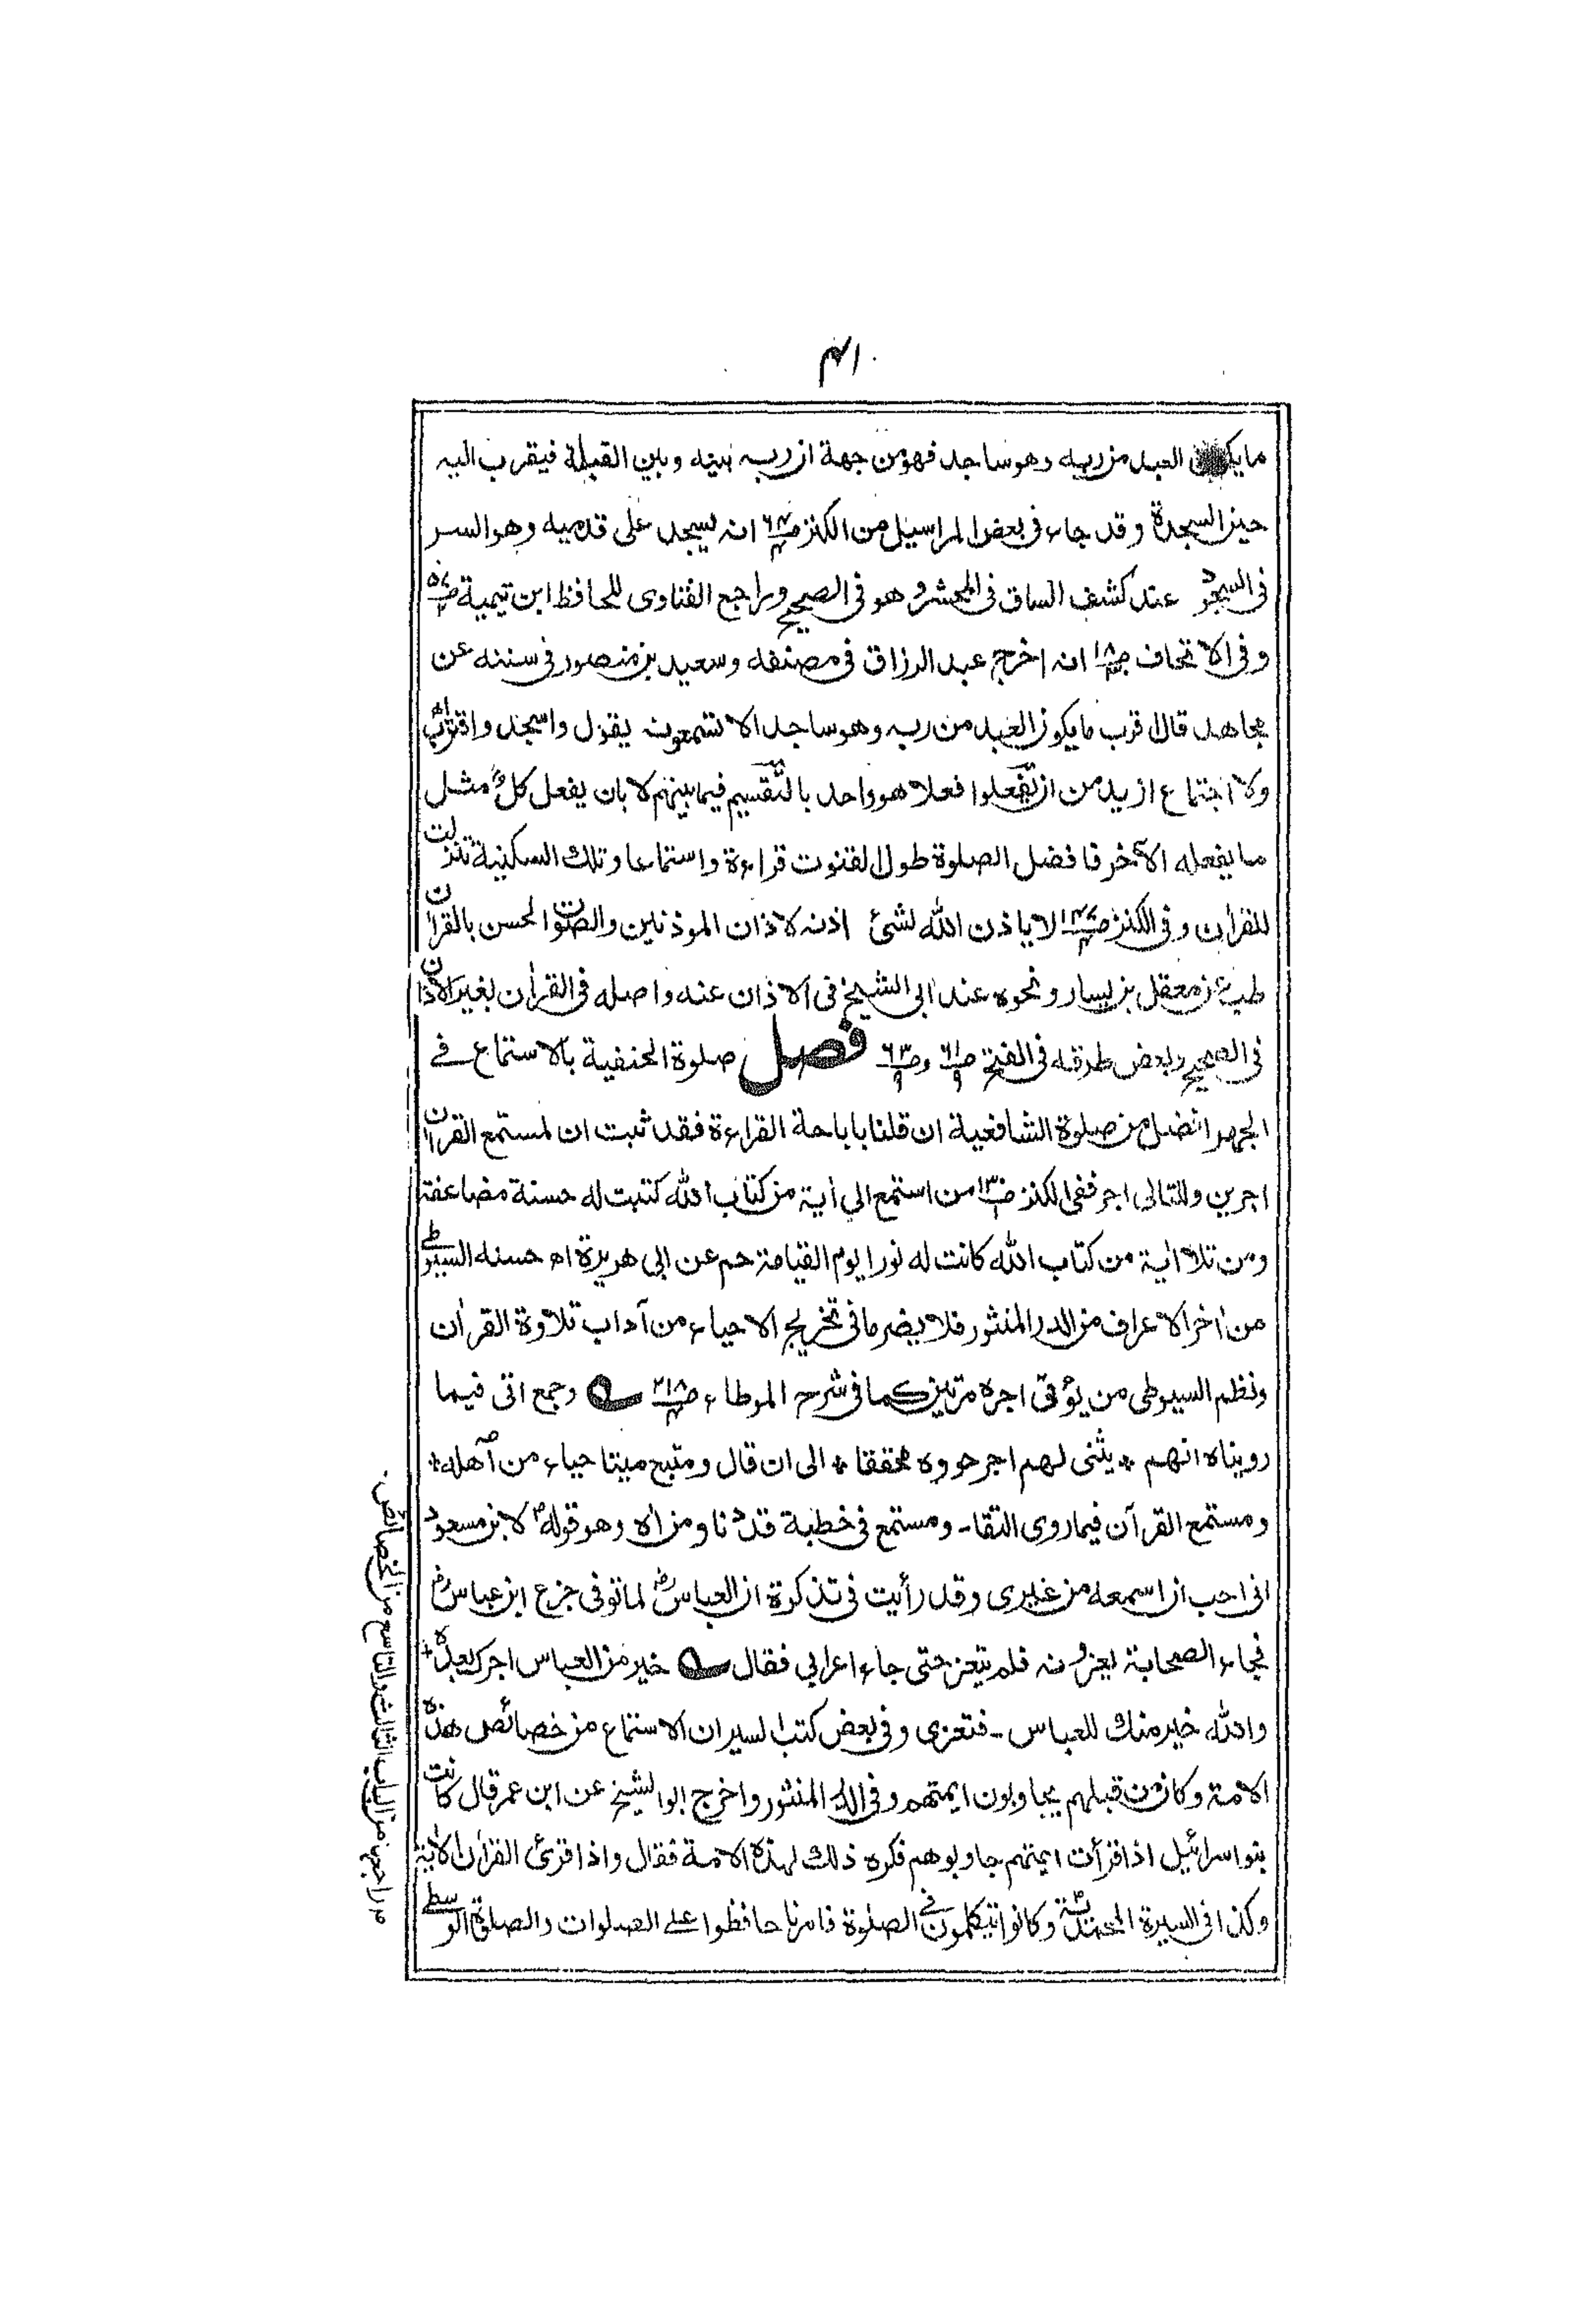 ۴۱
مايكون العبد من ربه وهو ساجد فهو من جهة ان ربه بينه وبين القبلة فيقرب اليه
حين السجدة وقد جاء فى بعض المراسيل من الكنز انه يسجد على قدميه وهو السر
فى السجود عند كشف الساق فى المحشر وهو فى الصحيح وراجع الفتاوى للحافظ ابن تيمية
وفى الاتحاف ص۱۸ انه اخرج عبد الرزاق فى مصنفه وسعيد بن منصور فى سننه عن
مجاهد قال اقرب ما يكون العبد من ربه وهو ساجد الا تسمعونه يقول واسجد واقترب اه
ولا اجتماع ازيد من ان يفعلوا فعلا هو واحد بالتقسيم فيما بينهم لا بان يفعل كل مثل
ما يفعله الآخر فافضل الصلوة طول القنوت قراءة واستماعا وتلك السكينة تنزلت
للقرأن وفى الكنز لا ياذن الله لشئ اذنه لاذان الموذنين والصوت الحسن بالقرأن
طب عن معقل بن يسار ونحوه عند ابى الشيخ فى الاذان عنه واصله فى القرأن بغير الاذان
فى الصحيح وبعض طرقه فى الفتح ص۶۱/۹ وص۶۳/۹ فصل صلوة الحنفية بالاستماع فے
الجهر افضل من صلوة الشافعية ان قلنا باباحة القراءة فقد ثبت ان لمستمع القرأن
اجرين وللتالى اجر ففى الكنز من استمع الى أية من كتاب الله كتبت له حسنة مضاعفة
ومن تلا أية من كتاب الله كانت له نورا يوم القيامة حم عن ابى هريرة اه حسنه السيوطے
من أخر الاعراف من الدر المنثور فلا يضر ما فى تخريج الاحياء من آداب تلاوة القرأن
ونظم السيوطى من يؤتى اجره مرتين كما فى شرحه الموطاء ص۲۱۸ ؎ وجمع اتى فيما
رويناه انهم * يثنى لهم اجر حووه محققا * الى ان قال ومتبع ميتا حياء من أهله *
ومستمع القرآن فيما روى التقا - ومستمع فى خطبة قد دنا ومن اه وهو قوله لابن مسعود
انى احب ان اسمعه من غيرى وقد رأيت فى تذكرة ان العباسؓ لما توفى جزع ابن عباسؓ
فجاء الصحابة يعزونه فلم يتعز حتى جاء اعرابى فقال ؎ خير من العباس اجرك بعده *
والله خير منك للعباس - فتعزى وفى بعض كتب السير ان الاستماع من خصائص هذه
الامة وكان من قبلهم يجاوبون ايمتهم وفى الدر المنثور واخرج ابو الشيخ عن ابن عمر قال كانت
بنو اسرائيل اذا قرأت ايمتهم جاوبوهم فكره ذلك لهذه الامة فقال واذا قرئ القرأن الأية
وكذا فى السيرة المحمدية وكانوا يتكلمون فے الصلوة فامرنا حافظوا علے الصلوات والصلوة الوسطے
راجعه من الباب الثالث والتاسع من الخصائص